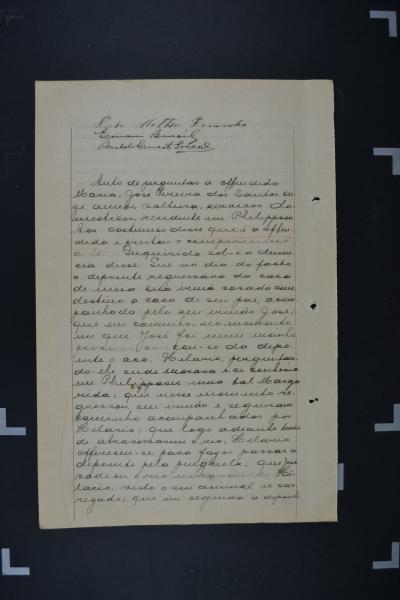 Pedro Mathia Fernandes
Ernani Brasil
Auto de perguntas a offendida
Maria José Pereira dos Santos, com
annos, solteira, serviços do
mesticos, residente em Philippson
Aos costumes disse que é a offen
dida e prestou o compromisso
Inquirida sobre a denun
cia disse: Que no dia do facto
a depoente regressava da casa
de uma sua irmã casada com
destino a casa de seu pae, acom
panhada pelo seu irmão José;
que em caminho, no momento
em que José foi num
cou-se da depo
ente o acc. Hilario, perguntan
do-lhe onde morava e se conhecia
em Philippson uma tal Marga
rida; que nesse momento re
gressou seu irmão e seguiram
caminho acompanhados por
Hilario; que logo adiante tendo
de atravessarem o rio, Hilario
offereceu-se para fazer passar a
depoente pela pinguela; que José
o rio Hi
lario, visto o seu animal ir car
regado; que em seguida a depoente